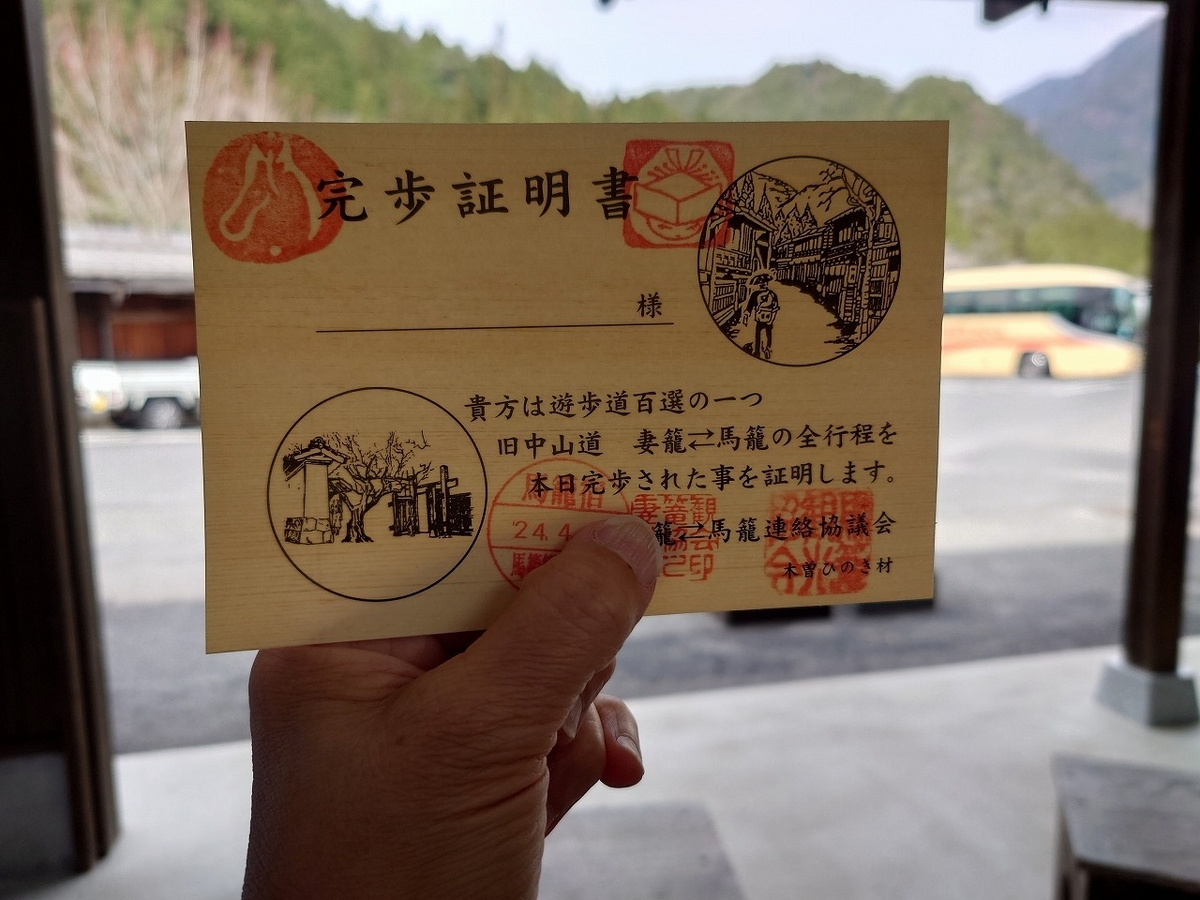 完歩証明書
様
貴方は遊歩道百選の一つ
旧中山道 妻籠⇄馬籠の全行程を
本日完歩された事を証明します。
籠⇄馬籠連絡協議会
木曽ひのき材
馬籠
24.4
馬籠